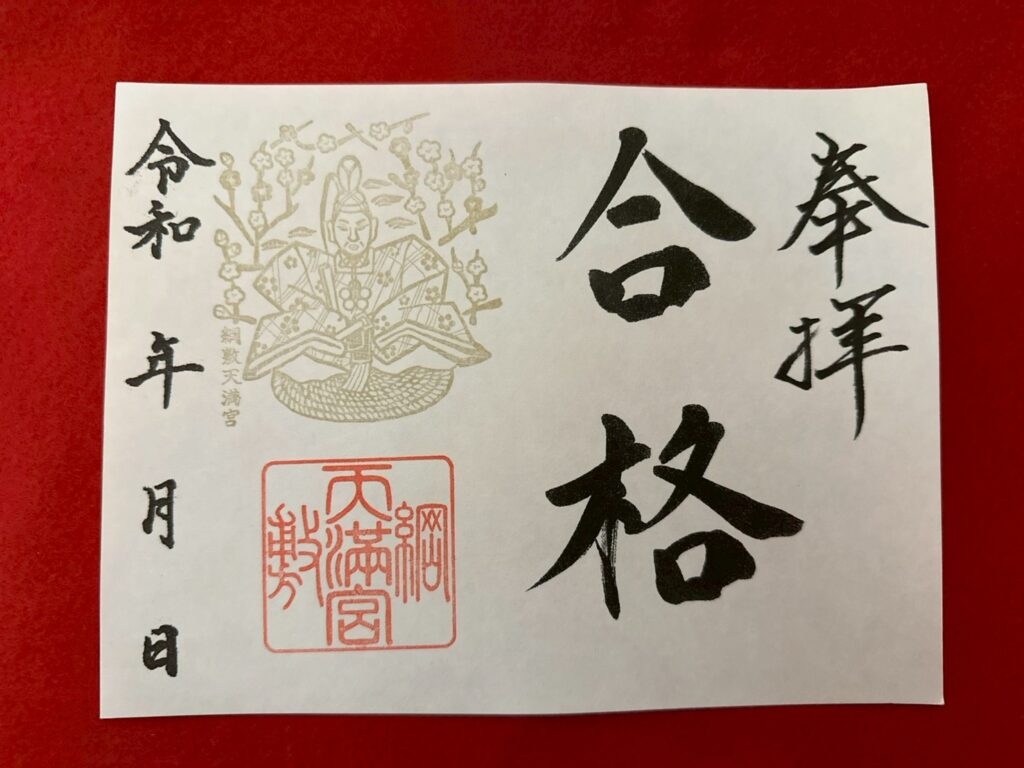 奉拝
合格
綱敷天満宮
綱敷天満宮
令和 年 月 日